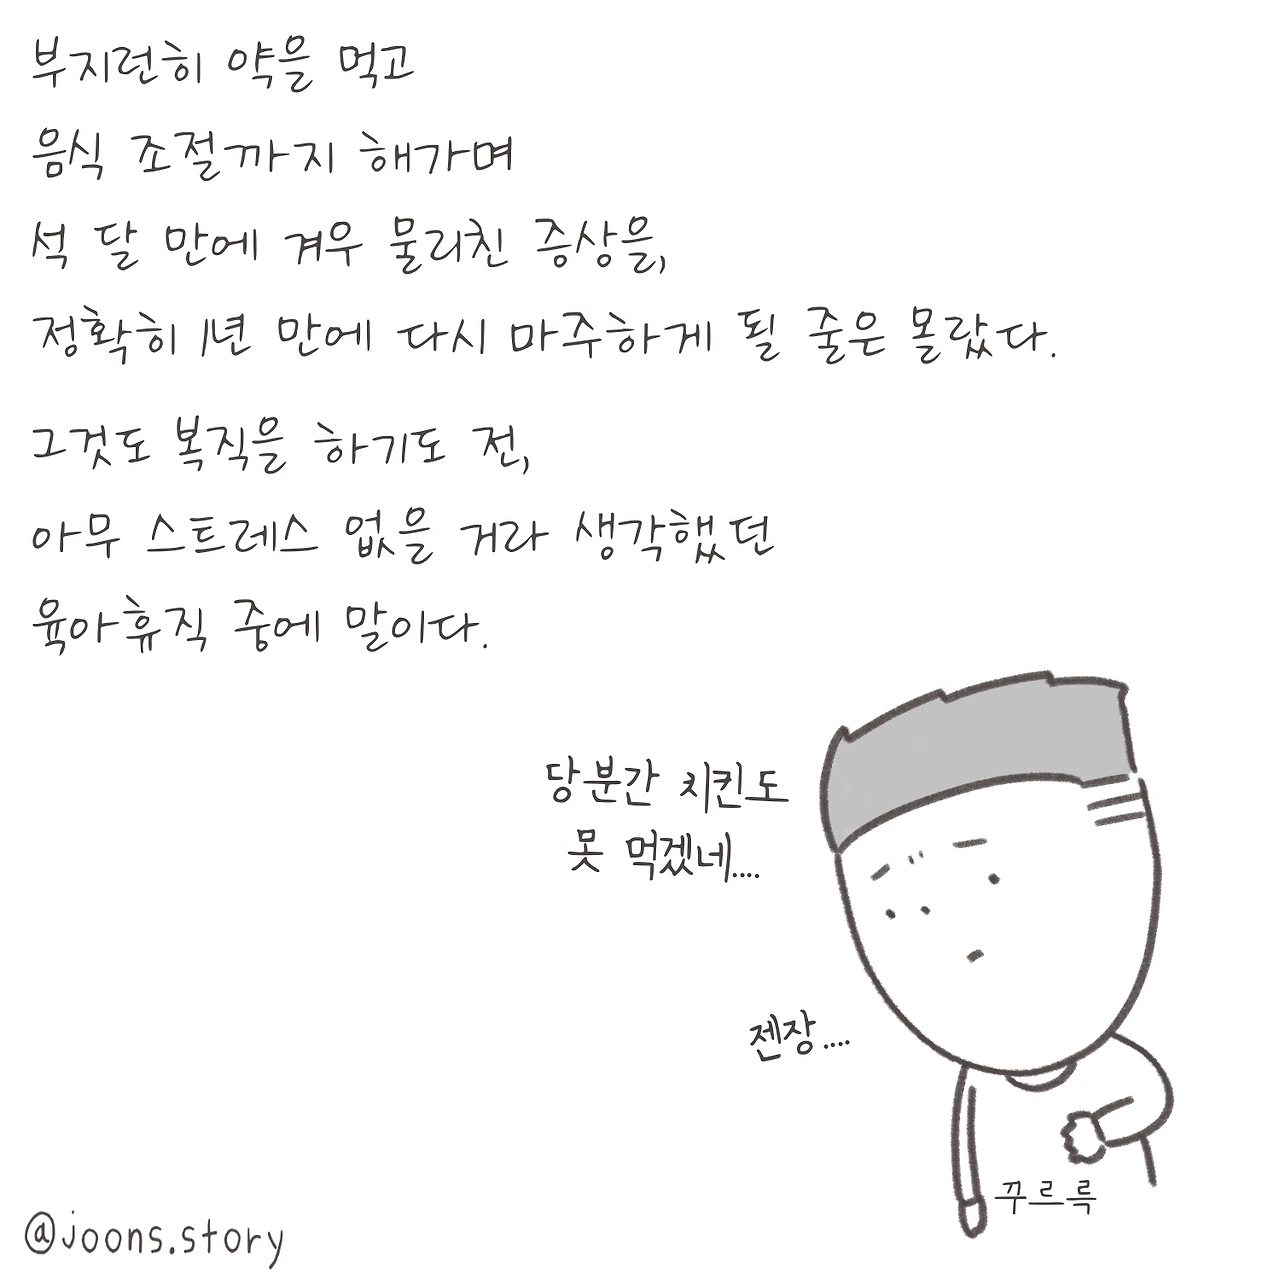 부지런히 약을 먹고
음식 조절까지 해가며
석 달 만에 겨우 물리친 증상을,
정확히 1년 만에 다시 마주하게 될 줄은 몰랐다.
그것도 복직을 하기도 전,
아무 스트레스 없을 거라 생각했던
육아휴직 중에 말이다.
당분간 치킨도
못 먹겠네....
젠장....
꾸르륵
@joons.story